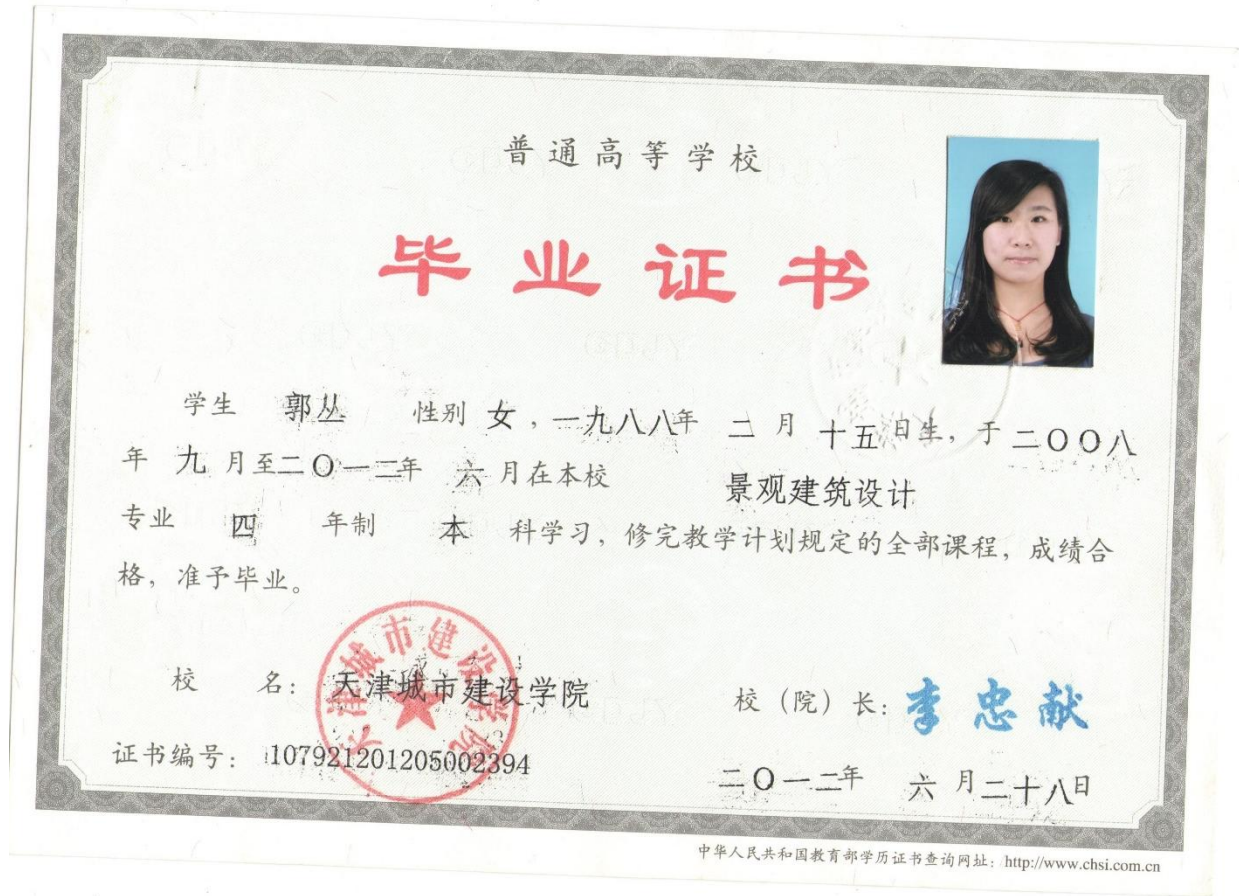 普通高等学校
毕业证书
学生 郭丛 性别 女，一九八八年 二月 十五日生，于二〇〇八
年 九 月至二〇一二年 六 月在本校 景观建筑设计
专业 四 年制 本 科学习，修完教学计划规定的全部课程，成绩合
格，准予毕业。
天津城市建设学院
校 名：天津城市建设学院
校（院）长：李忠献
证书编号：107921201205002394
二〇一二年 六 月二十八日
中华人民共和国教育部学历证书查询网址：http://www.chsi.com.cn